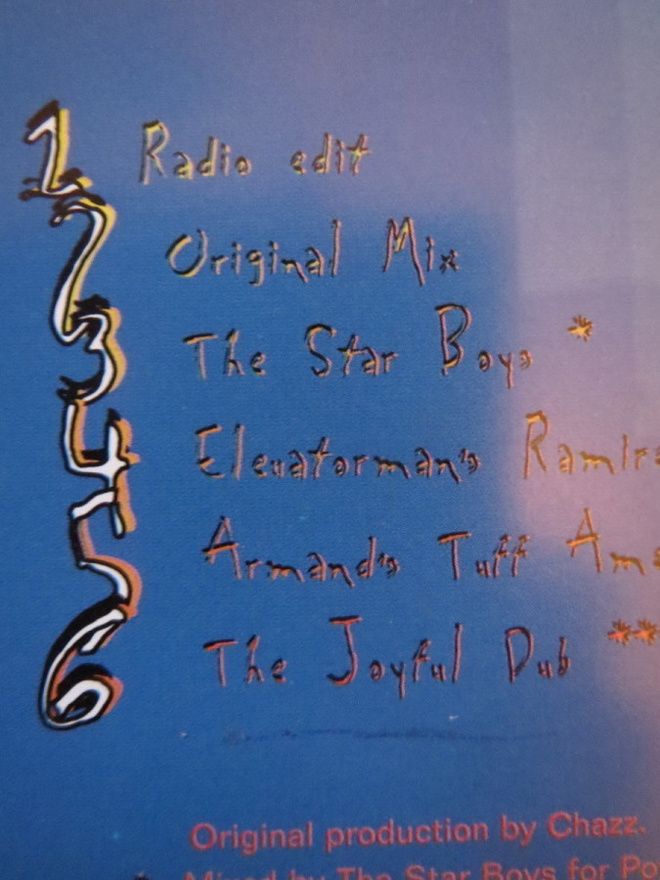 1 Radio edit
2 Original Mix
3 The Star Boys *
4 Elevatorman's Ramir
5 Armand's Tuff Am
6 The Joyful Dub **
Original production by Chazz.
Mixed by The Star Boys for Po